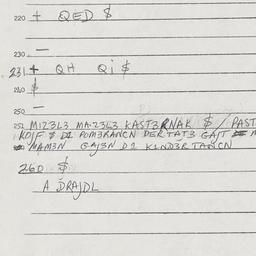 220 + QED $
230 —
231 + QH Qi $
240 $
250 —
252 MIZ3L3 MA-Z3L3 KAST3RNAK $ / PAST
ROJF $ DI POM3RANCN DERTAT3 GAJT
MAM3N GAJ3N DI KIND3R TANCN
260 $
A DRAJDL